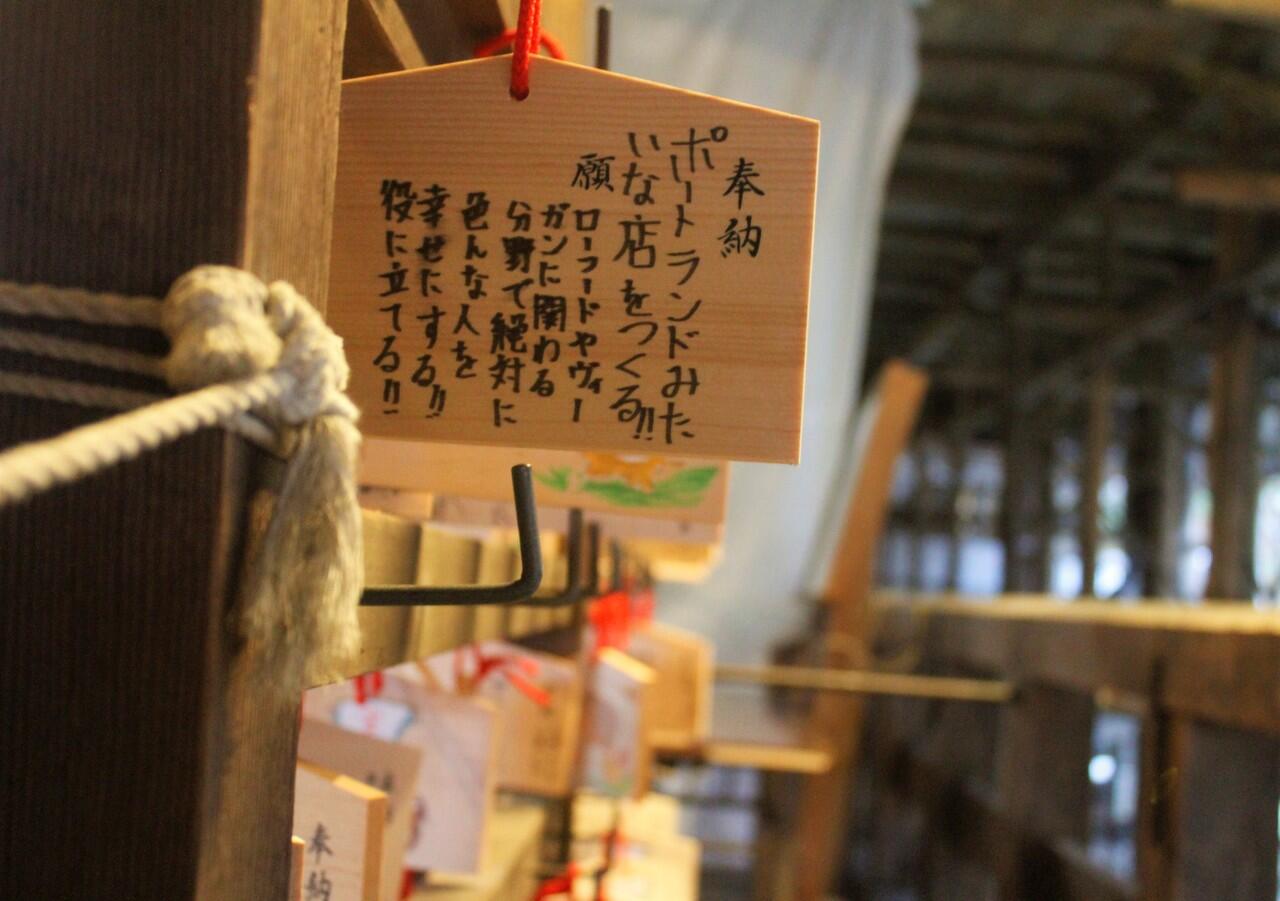 奉納
ポートランドみた
いな店をつくる!!
願
ローフードやヴィー
ガンに関わる
分野で絶対に
色んな人を
幸せにする!!
役に立てる!!
奉納